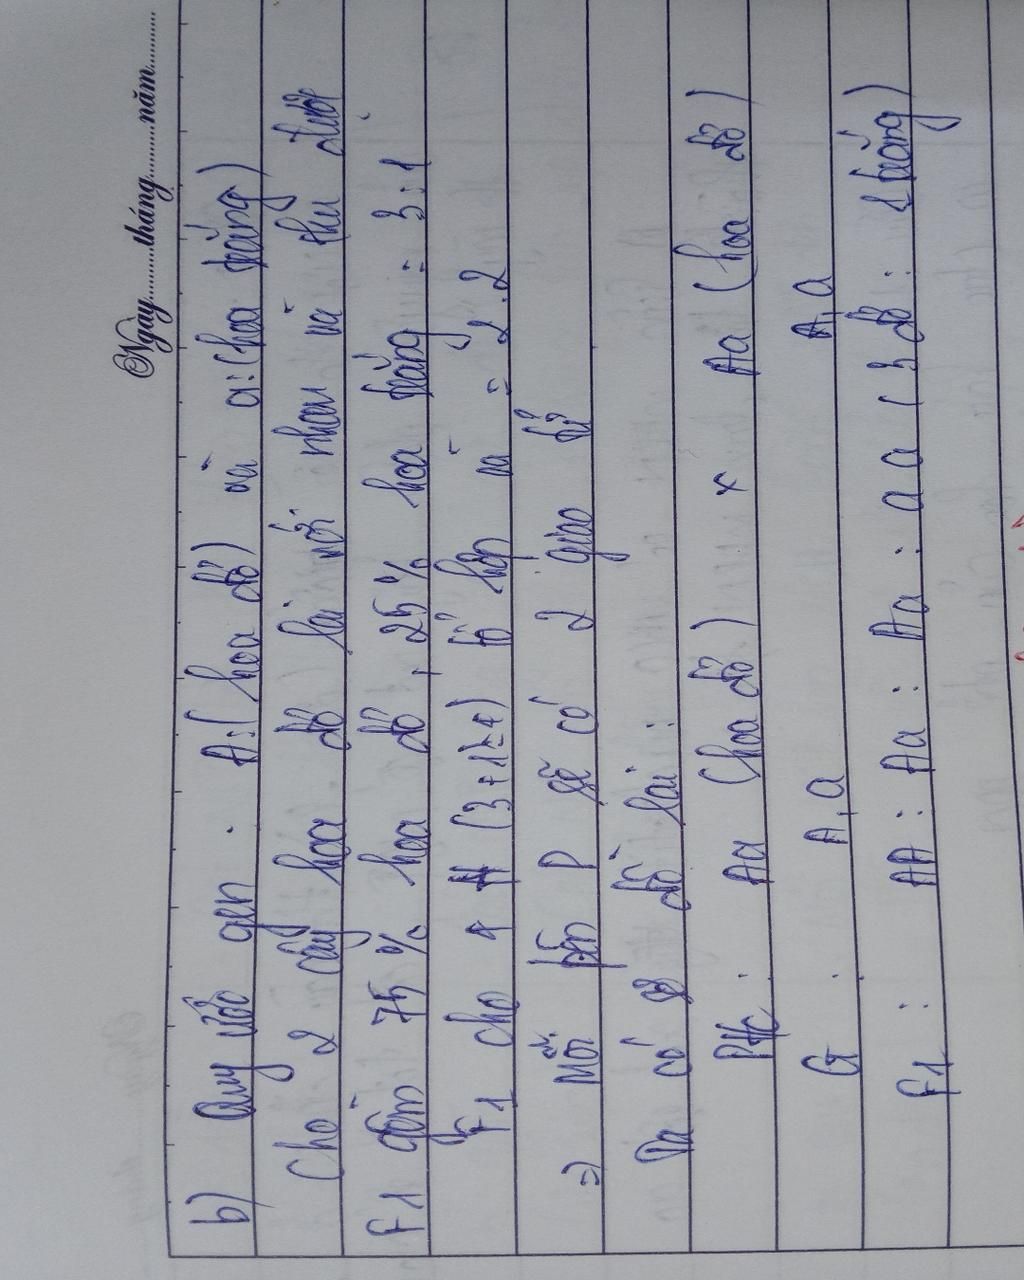 Ngày.........tháng.........năm.........
b) Quy ước gen . A:( hoa đỏ) và a:(hoa trắng)
Cho 2 cây hoa đỏ lai với nhau và thu được
F1 gồm 75 % hoa đỏ, 25% hoa trắng = 3:1
F1 cho 4 (3+1=4) tổ hợp và = 2.2
=) Mỗi bên P sẽ có 2 giao tử
Ta có sơ đồ lai:
Ptc : Aa (hoa đỏ) x Aa (hoa đỏ)
G : A, a A, a
F1 : AA : Aa : Aa : a a ( 3 đỏ : 1 trắng)